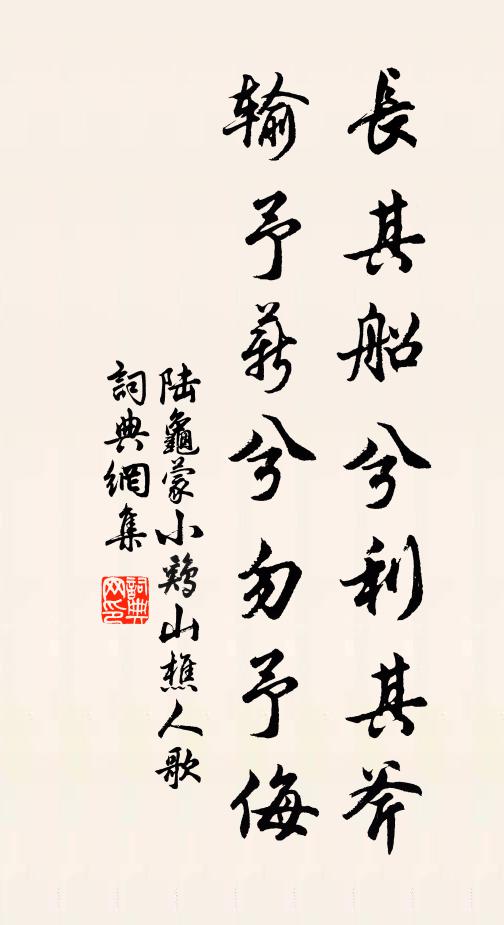 長其船兮利其斧
輸予薪兮勿予侮
陆龜蒙小鷄山樵人歌
詞典網集
詞典網印